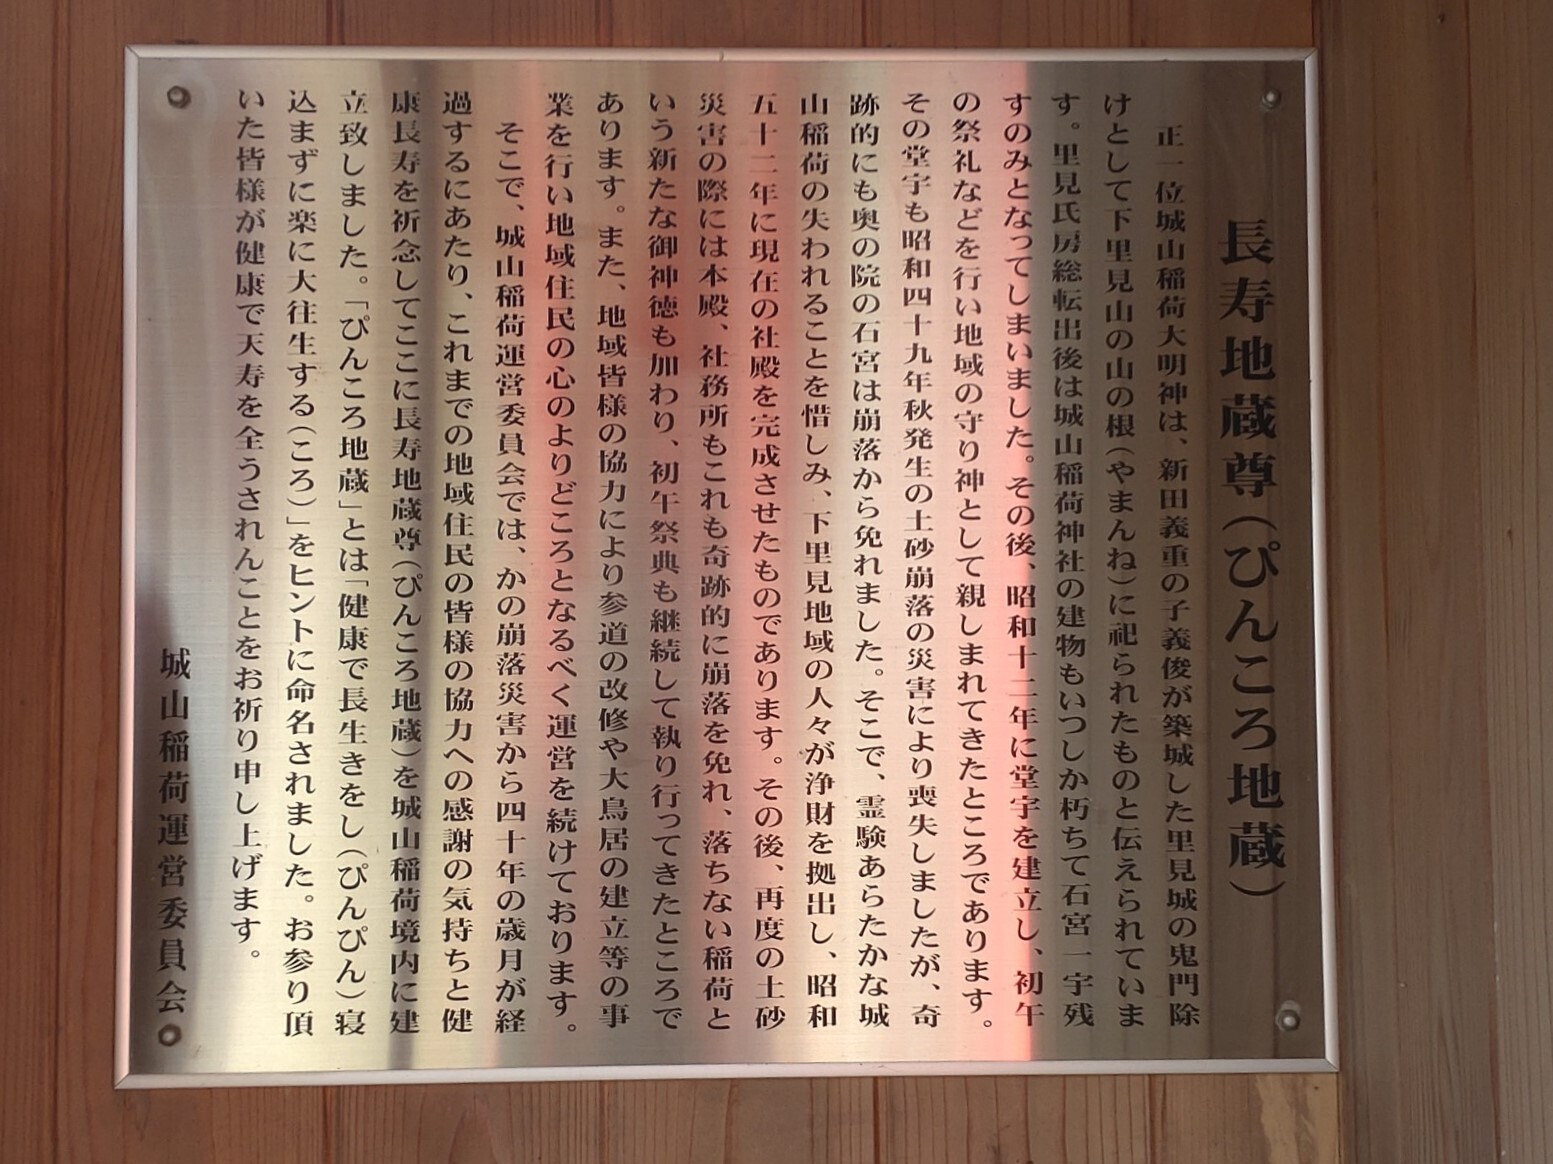 長寿地蔵尊(ぴんころ地蔵)
正一位城山稲荷大明神は、新田義重の子義俊が築城した里見城の鬼門除
けとして下里見山の山の根(やまんね)に祀られたものと伝えられていま
す。里見氏房総転出後は城山稲荷神社の建物もいつしか朽ちて石宮一宇残
すのみとなってしまいました。その後、昭和十二年に堂宇を建立し、初午
の祭礼などを行い地域の守り神として親しまれてきたところであります。
その堂宇も昭和四十九年秋発生の土砂崩落の災害により喪失しましたが、奇
跡的にも奥の院の石宮は崩落から免れました。そこで、霊験あらたかな城
山稲荷の失われることを惜しみ、下里見地域の人々が浄財を拠出し、昭和
五十二年に現在の社殿を完成させたものであります。その後、再度の土砂
災害の際には本殿、社務所もこれも奇跡的に崩落を免れ、落ちない稲荷と
いう新たな御神徳も加わり、初午祭典も継続して執り行ってきたところで
あります。また、地域皆様の協力により参道の改修や大鳥居の建立等の事
業を行い地域住民の心のよりどころとなるべく運営を続けております。
そこで、城山稲荷運営委員会では、かの崩落災害から四十年の歳月が経
過するにあたり、これまでの地域住民の皆様の協力への感謝の気持ちと健
康長寿を祈念してここに長寿地蔵尊(ぴんころ地蔵)を城山稲荷境内に建
立致しました。「ぴんころ地蔵」とは「健康で長生きをし(ぴんぴん)寝
込まずに楽に大往生する(ころ)」をヒントに命名されました。お参り頂
いた皆様が健康で天寿を全うされんことをお祈り申し上げます。
城山稲荷運営委員会